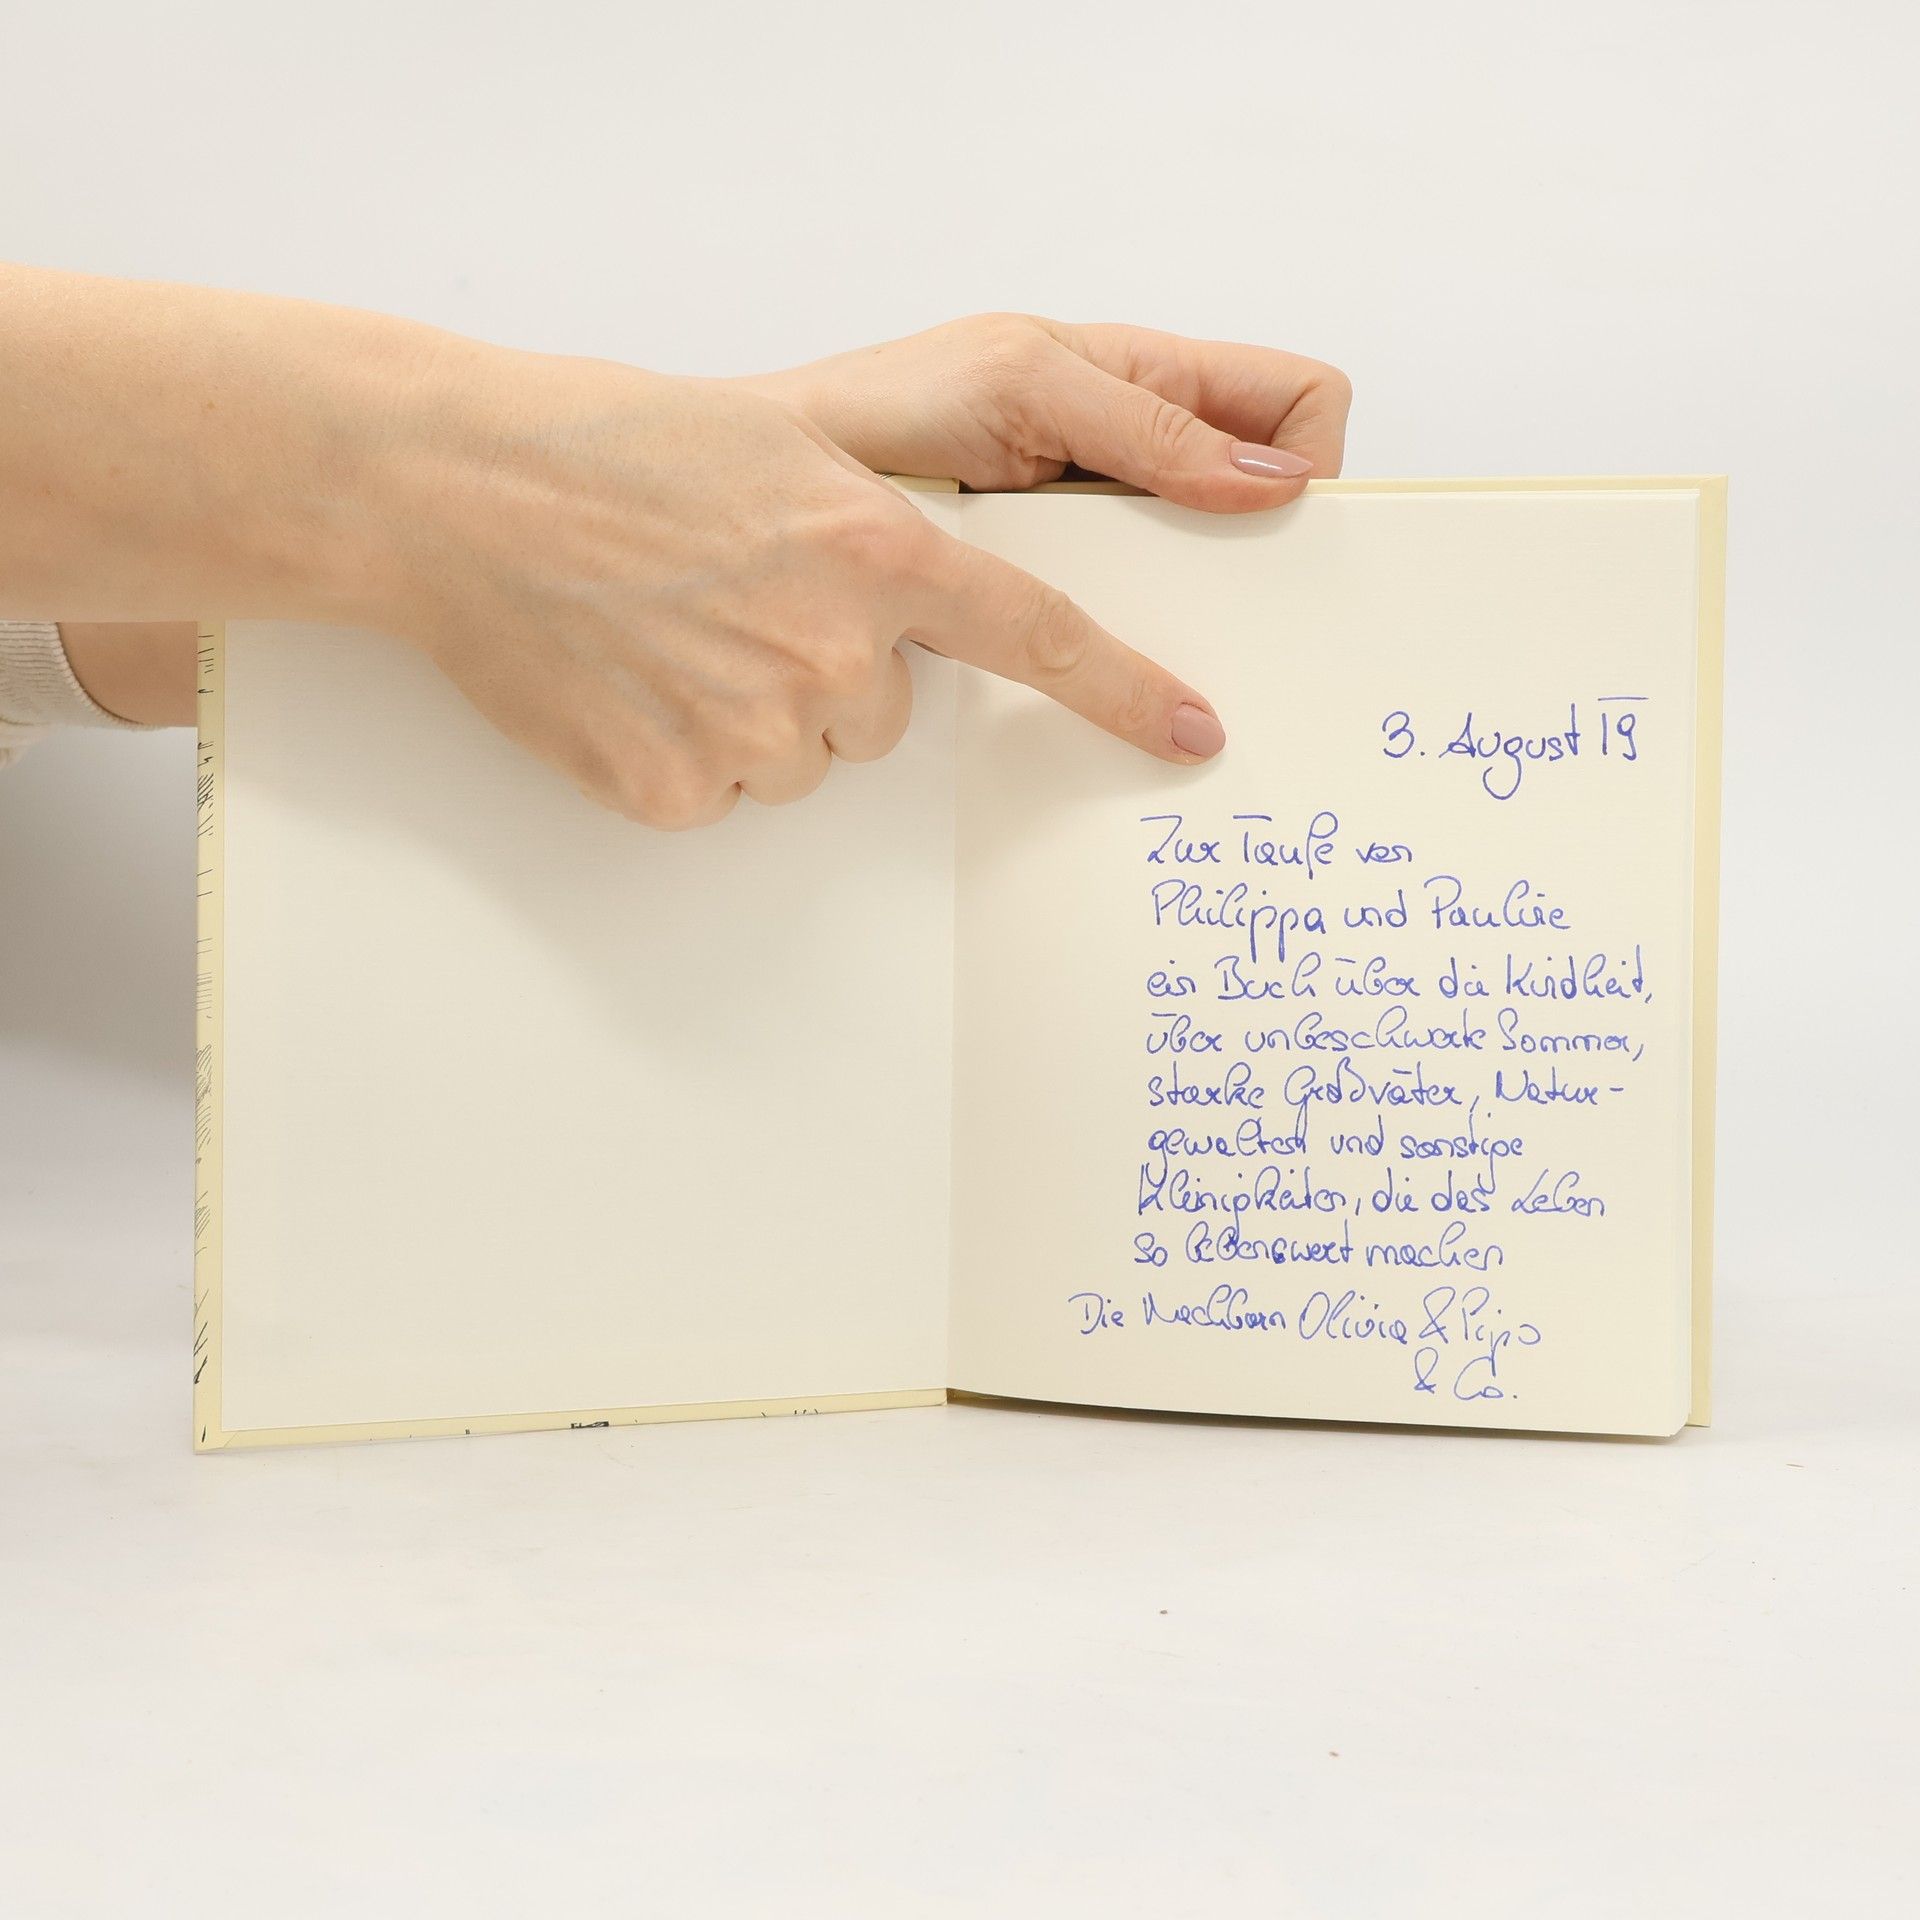 3. August 19
Zur Taufe von
Philippa und Pauline
ein Buch über die Kindheit,
über unbeschwerte Sommer,
starke Großväter, Natur-
gewalten und sonstige
Kleinigkeiten, die das Leben
so lebenswert machen
Die Nachbarn Olivia & Pipo
& Co.